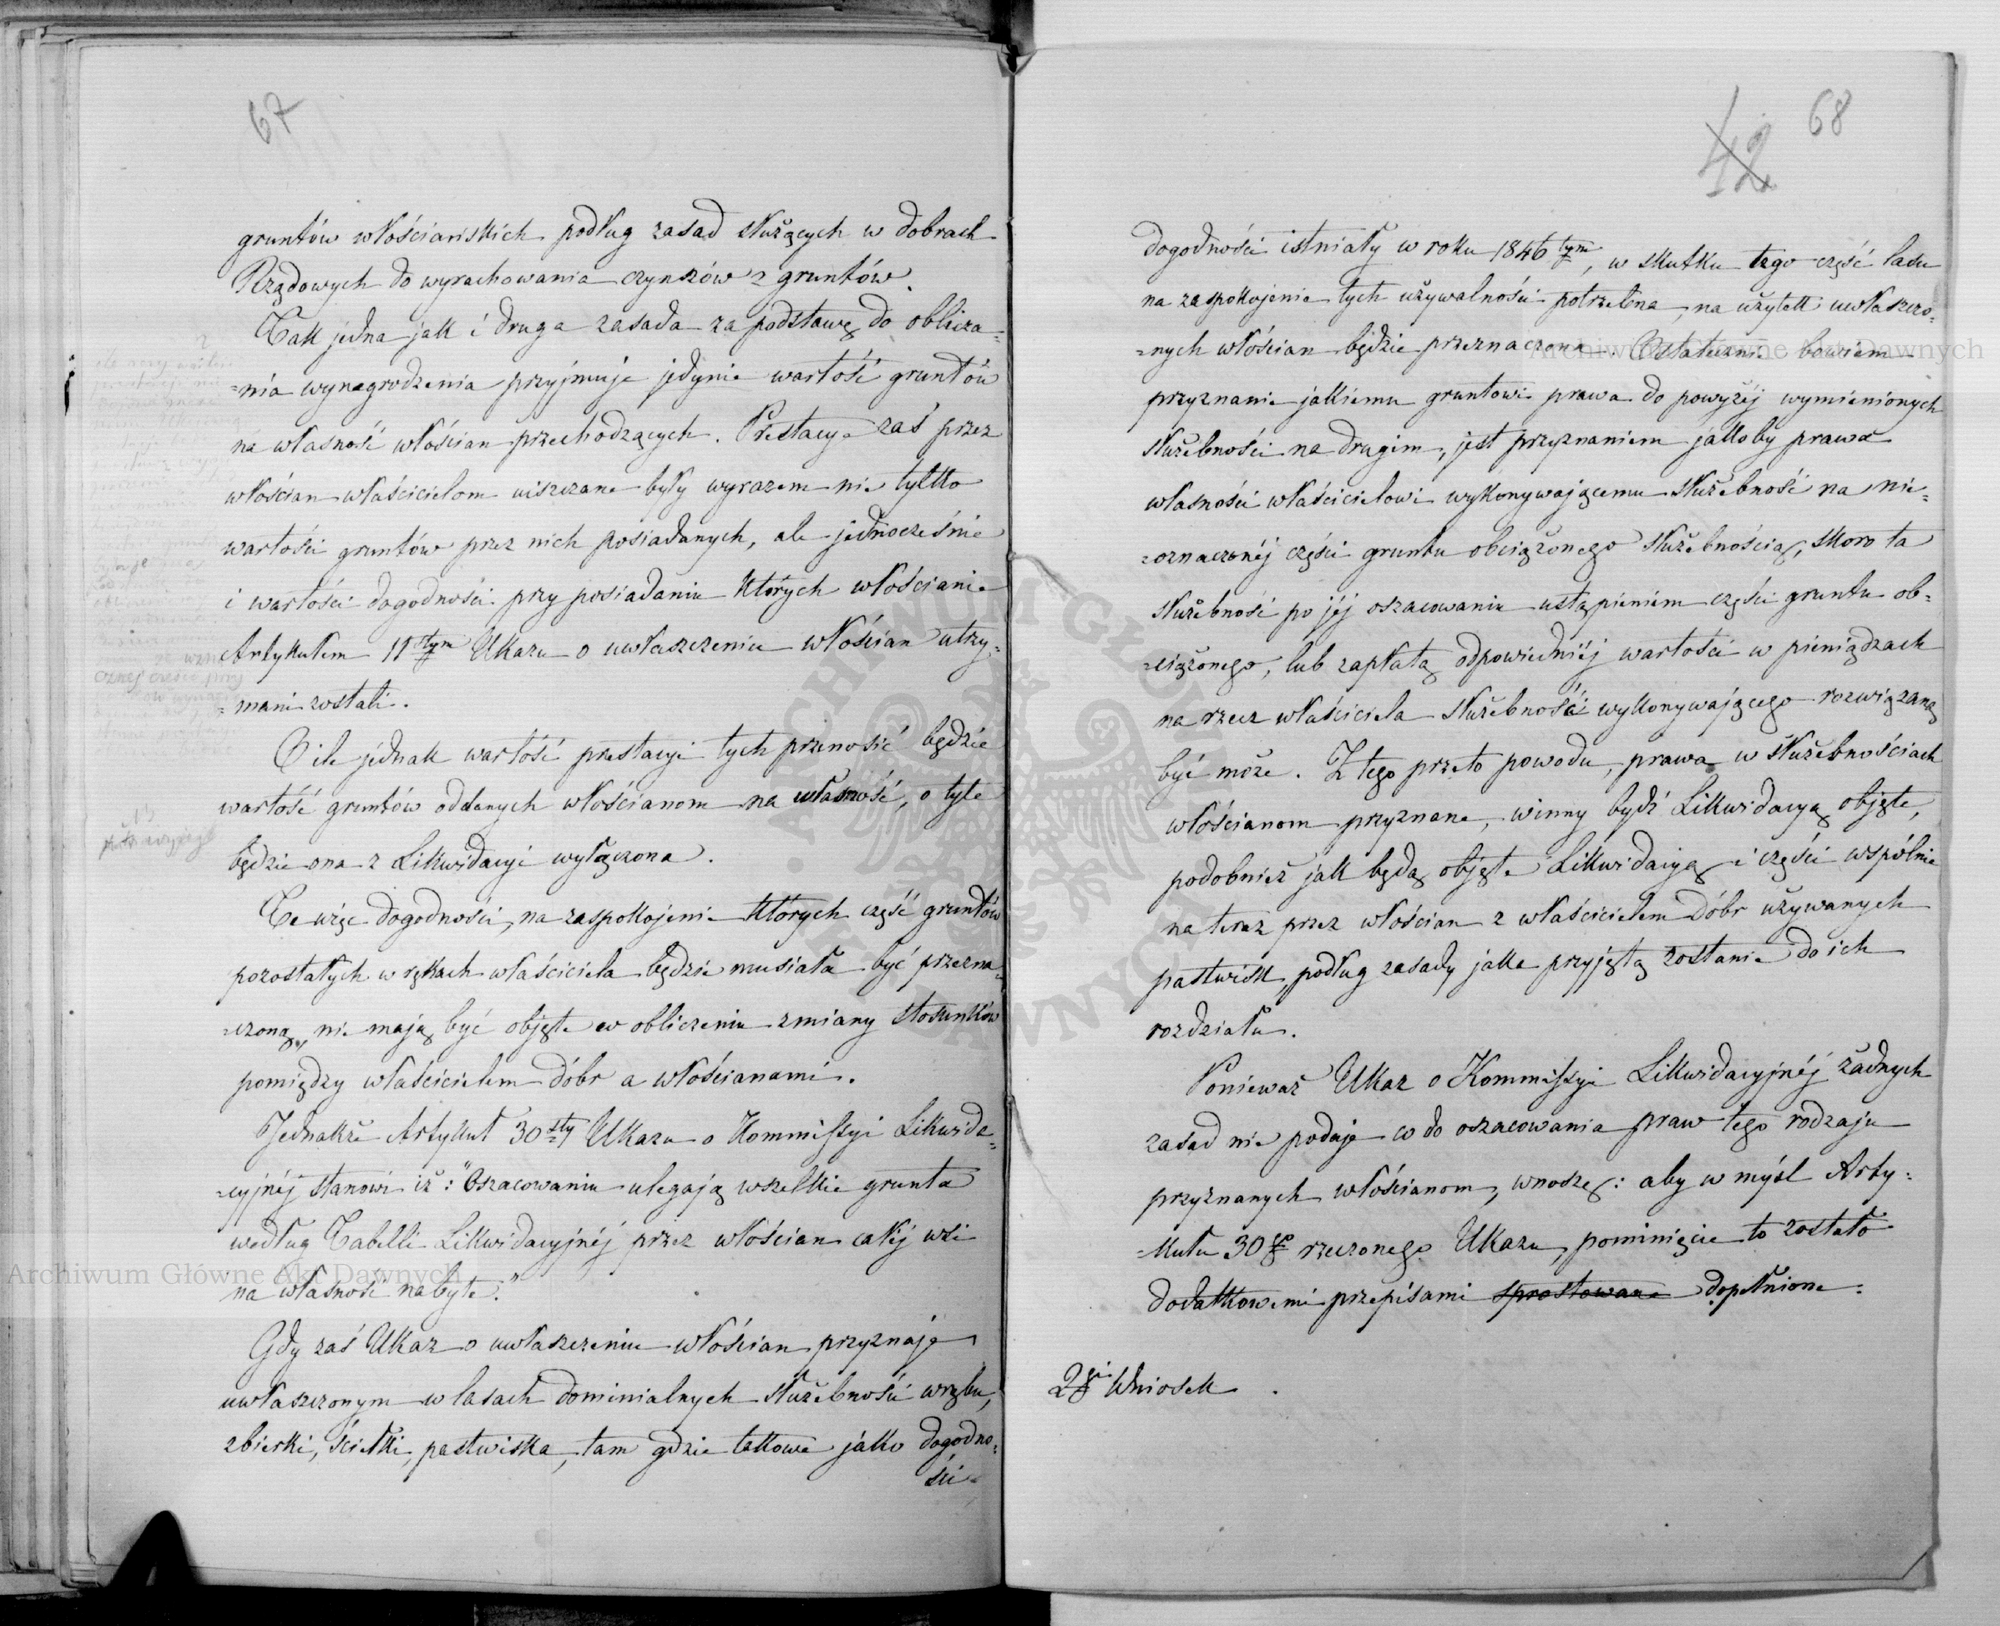 67
gruntów włościańskich podług zasad służących w dobrach
Rządowych do wyrachowania czynszów z gruntów.
Tak jedna jak i druga zasada za podstawę do oblicza=
=nia wynagrodzenia przyjmuje jedynie wartość gruntów
na własność włościan przechodzących. Prestacye zaś przez
włościan właścicielom uiszczane były wyrazem nie tylko
wartości gruntów przez nich posiadanych, ale jednocześnie
i wartości dogodności przy posiadaniu których włościanie
Artykułem 11stym Ukazu o uwłaszczeniu włościan utrzy=
=mani zostali.
O ile jednak wartość prestacyi tych przenosić będzie
wartość gruntów oddanych włościanom na własność, o tyle
będzie ona z Likwidacyi wyłączona.
Te więc dogodności, na zaspokojenie których część gruntów
pozostałych w rękach właściciela będzie musiała być przezna=
=czoną, nie mają być objęte w obliczeniu zmiany stosunków
pomiędzy właścicielem dóbr a włościanami.
Jednakże Artykuł 30sty Ukazu o Kommissyi Likwida=
=cyjnéj stanowi iż: "Oszacowaniu ulegają wszelkie grunta
według Tabelli Likwidacyjnéj przez włościan całéj wsi
na własność nabyte."
Gdy zaś Ukaz o uwłaszczeniu włościan przyznaje
uwłaszczonym w lasach dominialnych służebności wrębu,
zbierki, ściełki, pastwiska, tam gdzie takowe jako dogodno=
ści
68
42
dogodności istniały w roku 1846tym, w skutku tego część lasu
na zaspokojenie tych używalności potrzebna, na użytek uwłaszczo=
=nych włościan będzie przeznaczona. Ostatecznie bowiem
przyznanie jakiemu gruntowi prawa do powyżéj wymienionych
służebności na drugim, jest przyznaniem jakoby prawa
własności właścicielowi wykonywającemu służebność na nie=
=oznaczonéj części gruntu obciążonego służebnością, skoro ta
służebność po jéj oszacowaniu ustąpieniem części gruntu ob=
=ciążonego, lub zapłatą odpowiedniéj wartości w pieniądzach
na rzecz właściciela służebności wykonywającego rozwiązaną
być może. Z tego przeto powodu, prawa w służebnościach
włościanom przyznane, winny bydź Likwidacyą objęte,
podobnież jak będą objęte Likwidacyą i części wspólnie
na teraz przez włościan z właścicielem dóbr używanych
pastwisk, podług zasady jaka przyjętą zostanie do ich
rozdziału.
Ponieważ Ukaz o Kommissyi Likwidacyjnéj żadnych
zasad nie podaje co do oszacowania praw tego rodzaju
przyznanych włościanom, wnoszę: aby w myśl Arty=
=kułu 30go rzeczonego Ukazu, pominięcie to zostało
dodatkowemi przepisami sprostowane dopełnione.
2gi Wniosek.
Archiwum Główne Akt Dawnych
Archiwum Główne Akt Dawnych
ARCHIWUM GŁÓWNE AKT DAWNYCH